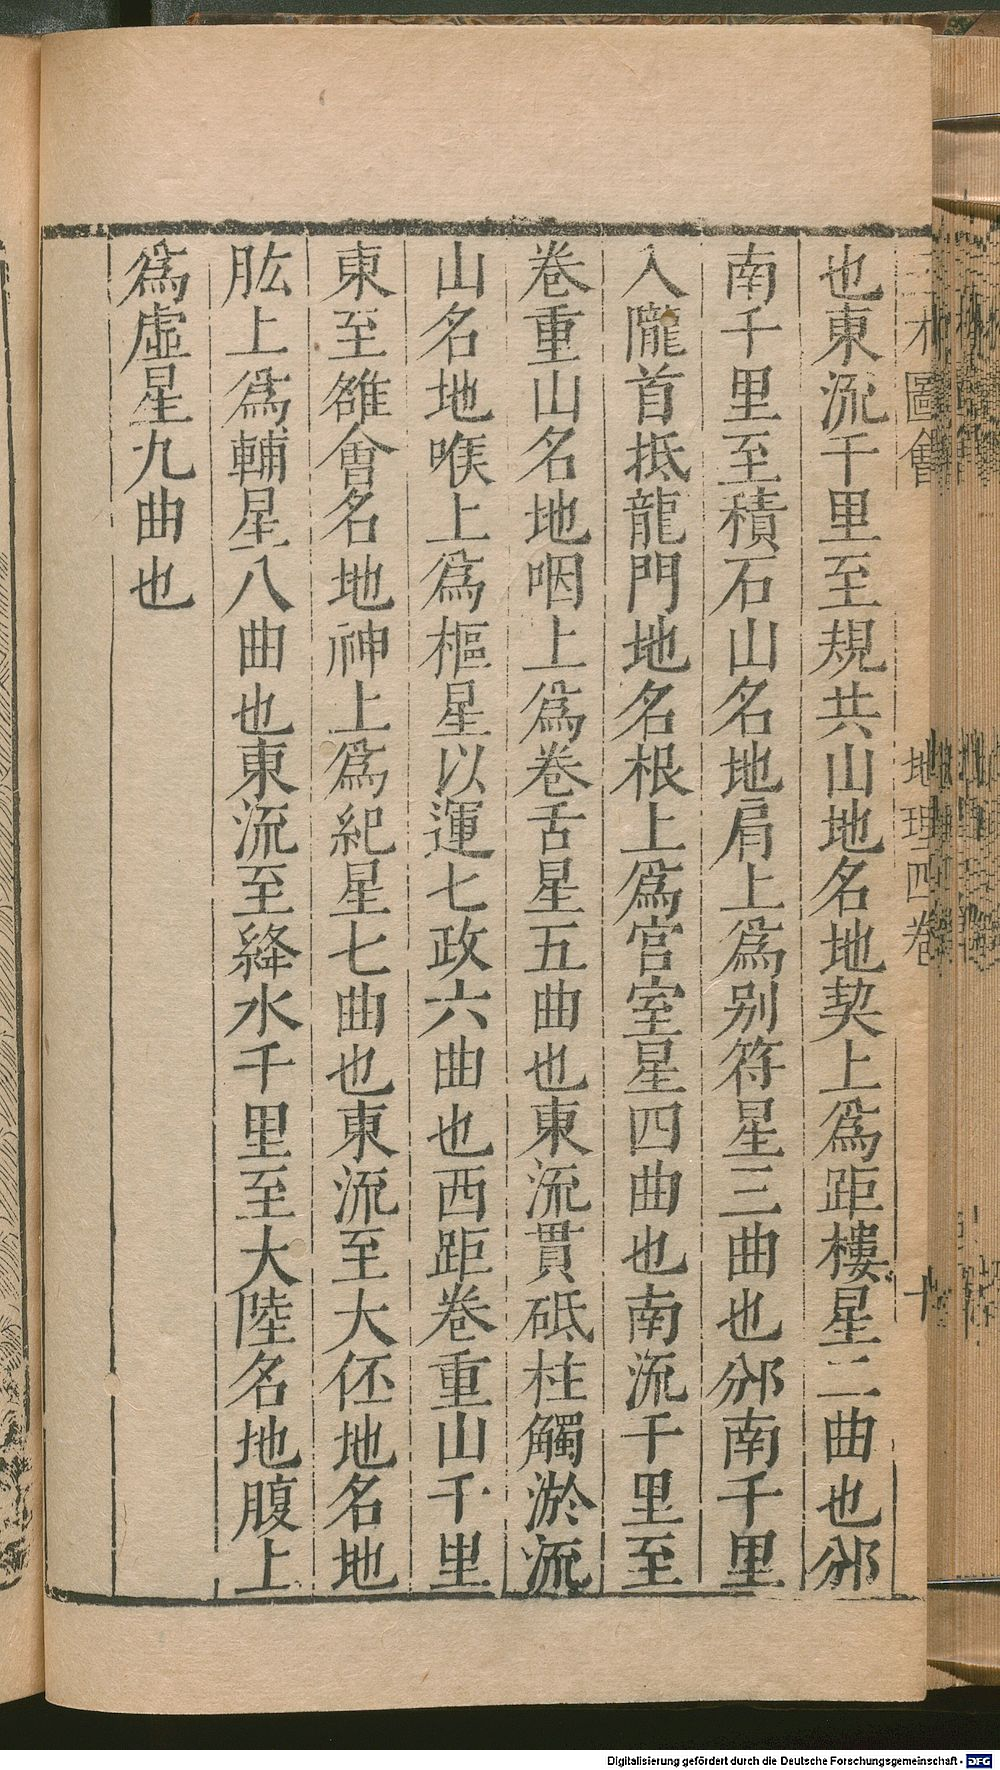 三才圖會
地理四卷
十
也東流千里至規共山地名地契上爲距樓星二曲也邠
南千里至積石山名地肩上爲别符星三曲也邠南千里
入隴首抵龍門地名根上爲宫室星四曲也南流千里至
卷重山名地咽上爲卷舌星五曲也東流貫砥柱觸淤流
山名地喉上爲樞星以運七政六曲也西距卷重山千里
東至雒會名地神上爲紀星七曲也東流至大伾地名地
肱上爲輔星八曲也東流至絳水千里至大陸名地腹上
爲虛星九曲也
Digitalisierung gefördert durch die Deutsche Forschungsgemeinschaft - DFG